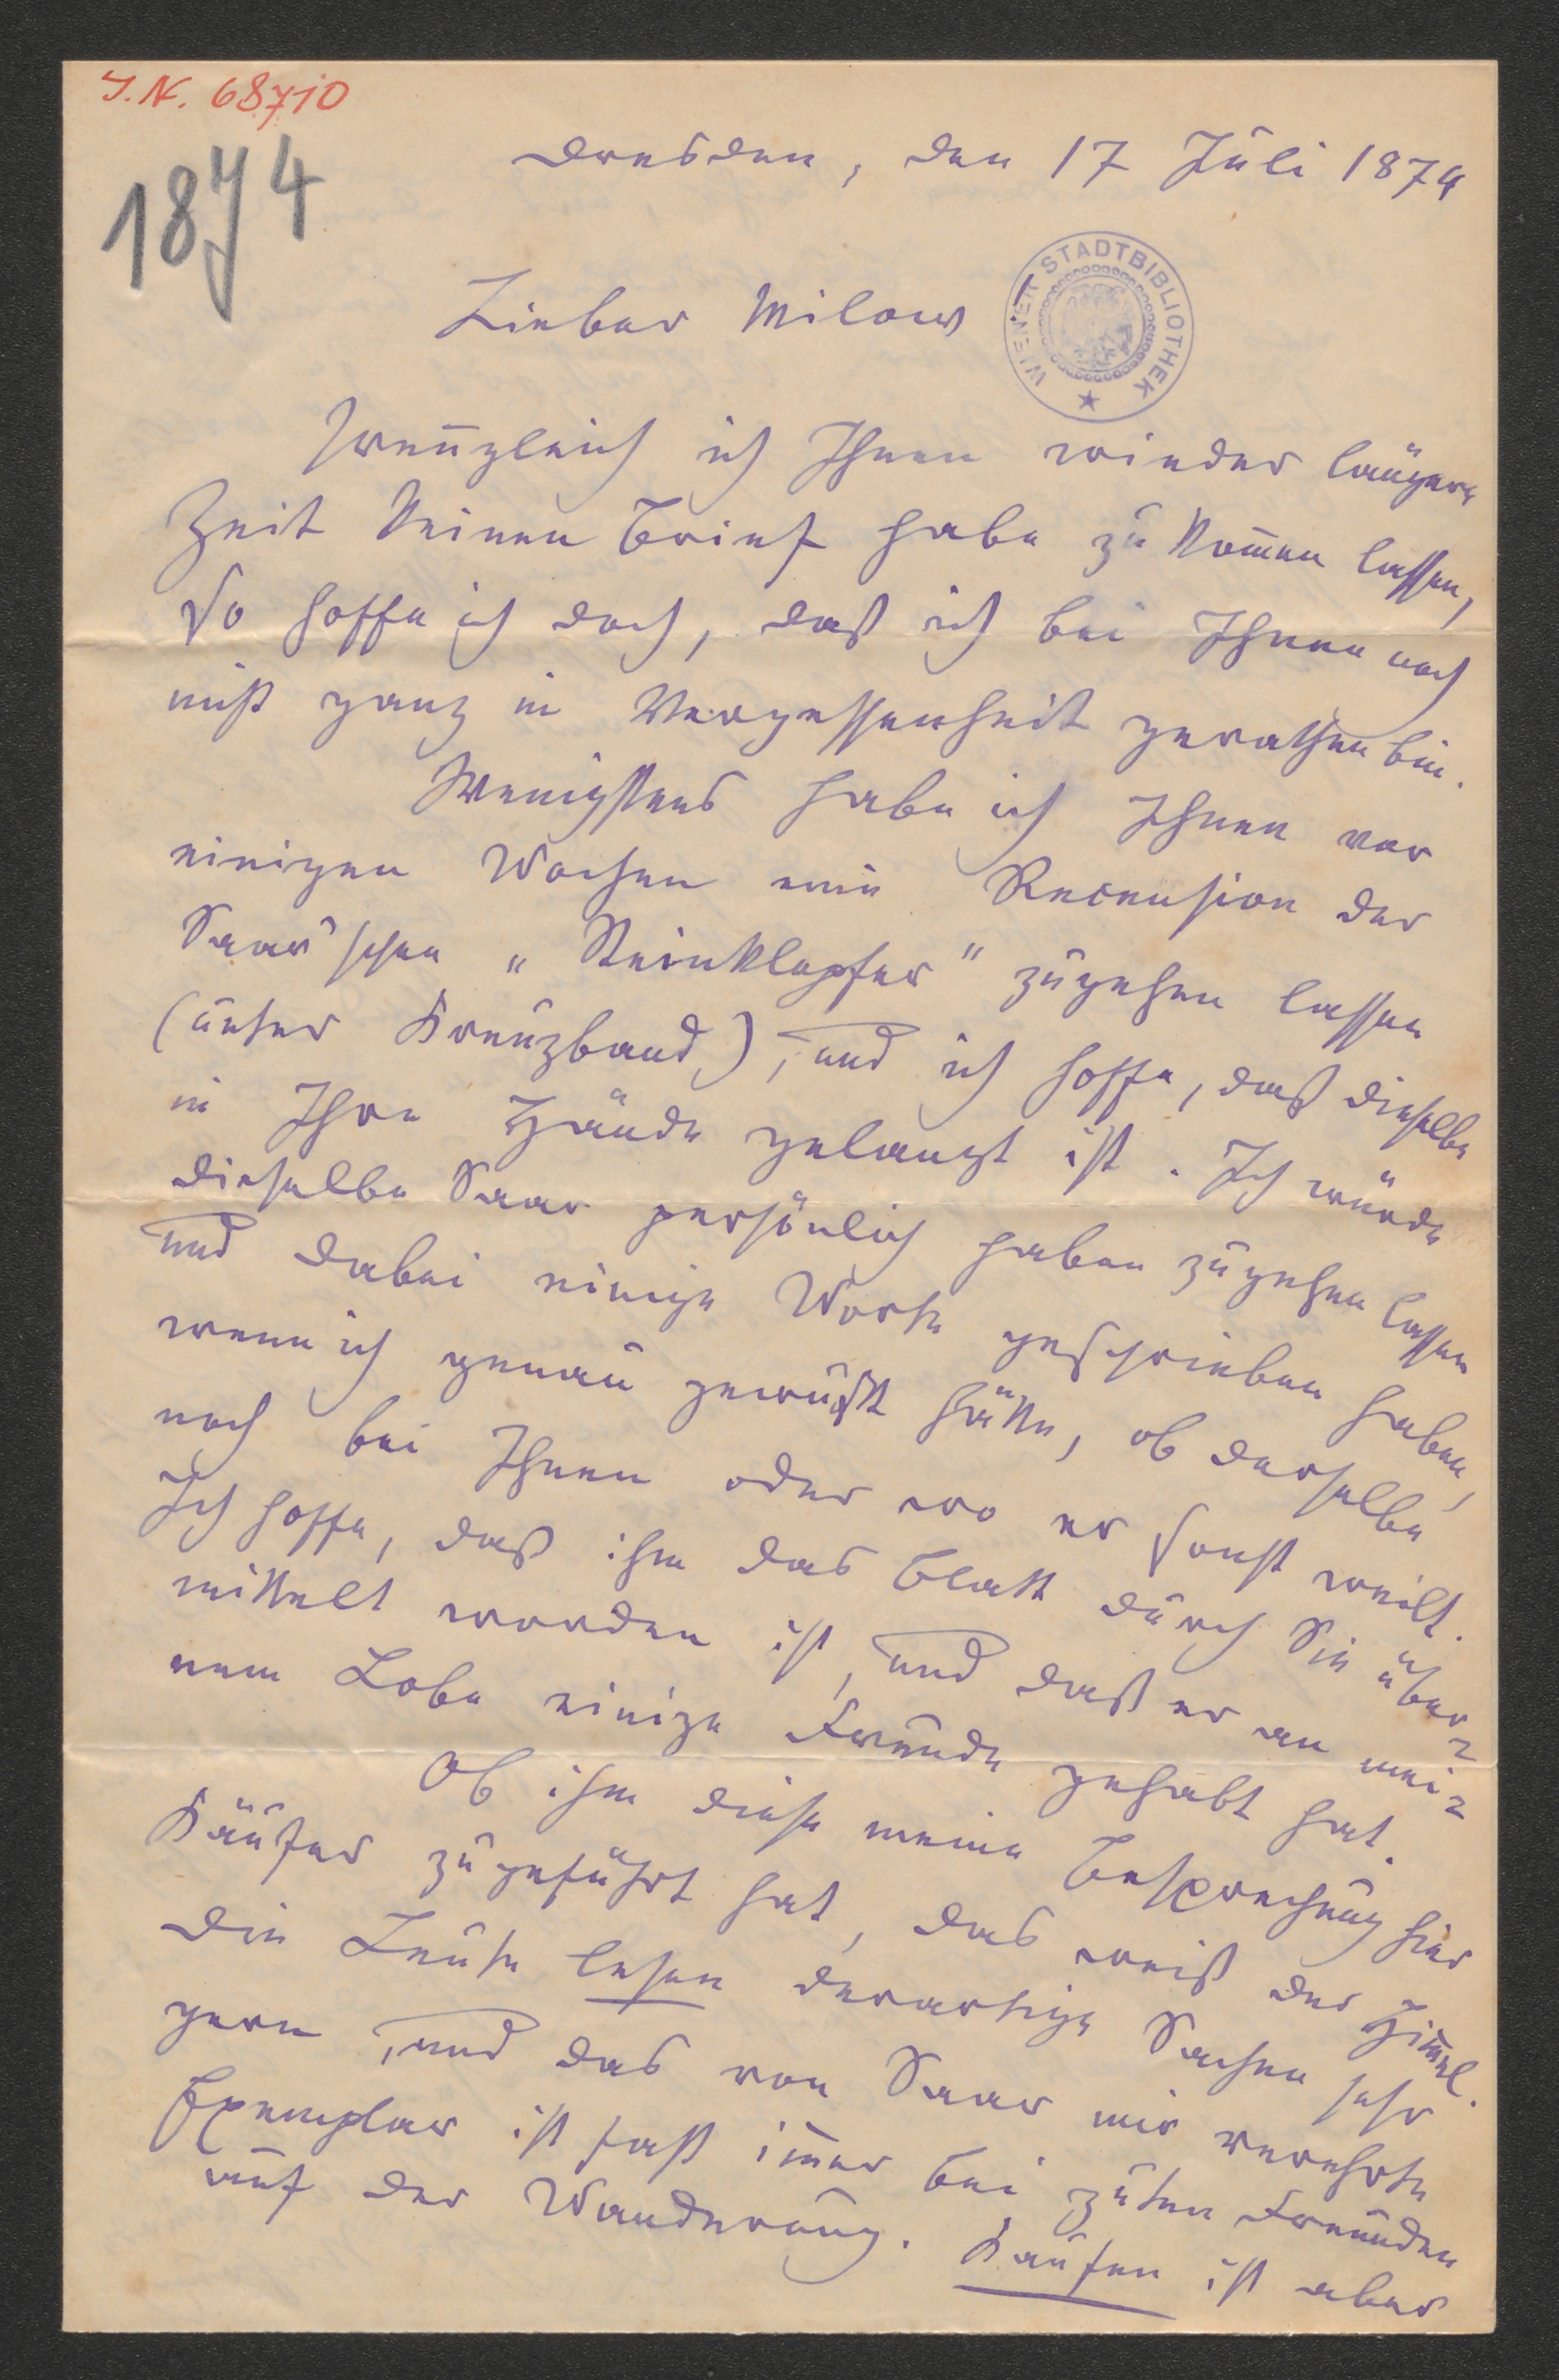 I.N. 68710
1874
Dresden, den 17 Juli 1874
WIENER STADTBIBLIOTHEK
Lieber Milow
Wenngleich ich Ihnen wieder längere
Zeit keinen Brief habe zu kom̄en lassen,
so hoffe ich doch, daß ich bei Ihnen noch
nicht ganz in Vergessenheit gerathen bin.
Wenigstens habe ich Ihnen vor
einigen Wochen eine Recension der
Saar'schen „Steinklopfer" zugehen lassen
(unter Kreuzband), und ich hoffe, daß dieselbe
in Ihre Hände gelangt ist. Ich würde
dieselbe Saar persönlich haben zugehen lassen
und dabei einige Worte geschrieben haben,
wenn ich genau gewußt hätte, ob derselbe
noch bei Ihnen oder wo er sonst weilt.
Ich hoffe, daß ihm das Blatt durch Sie über-
mittelt worden ist, und daß er an mei-
nem Lobe einige Freude gehabt hat.
Ob ihm diese meine Besprechung hier
Käufer zugeführt hat, das weiß der Him̄el.
Die Leute lesen derartige Sachen sehr
gern, und das von Saar mir verehrte
Exemplar ist fast im̄er bei guten Freunden
auf der Wanderung. Kaufen ist aber